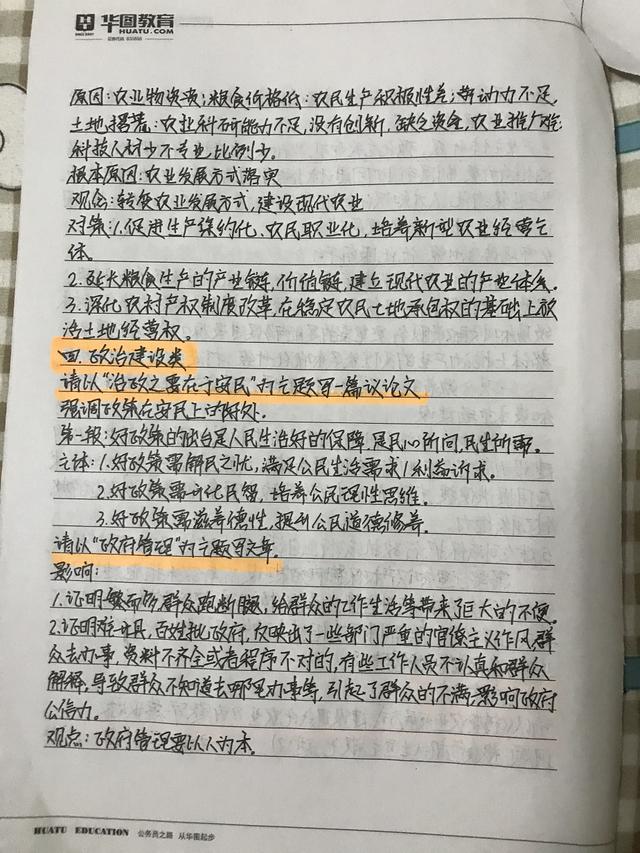 华图教育
HUATU.COM
原因:农业物资贵;粮食价格低:农民生产积极性差;劳动力不足,
土地撂荒:农业科研能力不足,没有创新,缺乏资金,农业推广难:
科技人材少不专业,比例少。
根本原因:农业发展方式落实
观念:转变农业发展方式,建设现代农业
对策:1.促进生产集约化、农民职业化,培养新型农业经营主
体。
2.延长粮食生产的产业链,价值链,建立现代农业的产业体系。
3.深化农村产权制度改革,在稳定农民土地承包权的基础上放
活土地经营权。
四.政治建设类
请以“治政之要在于安民”为主题写一篇议论文
强调政策在安民上的好处。
第一段:好政策的出台是人民生活好的保障,是民心所向,民生所需。
主体:1.好政策需解民之忧,满足公民生活需求/利益诉求。
2.好政策需开化民智,培养公民理性思维。
3.好政策需滋养德性,提升公民道德修养。
请以“政府管理”为主题写文章。
影响:
1.证明繁而多,群众跑断腿,给群众的工作生活等带来了巨大的不便。
2.证明难开具,百姓批政府,反映出了一些部门严重的官僚主义作风,群
众去办事,资料不齐全或者程序不对的,有些工作人员不认真和群众
解释,导致群众不知道去哪里办事等,引起了群众的不满,影响政府
公信力。
观点:政府管理要以人为本。
HUATU EDUCATION 公务员之路 从华图起步